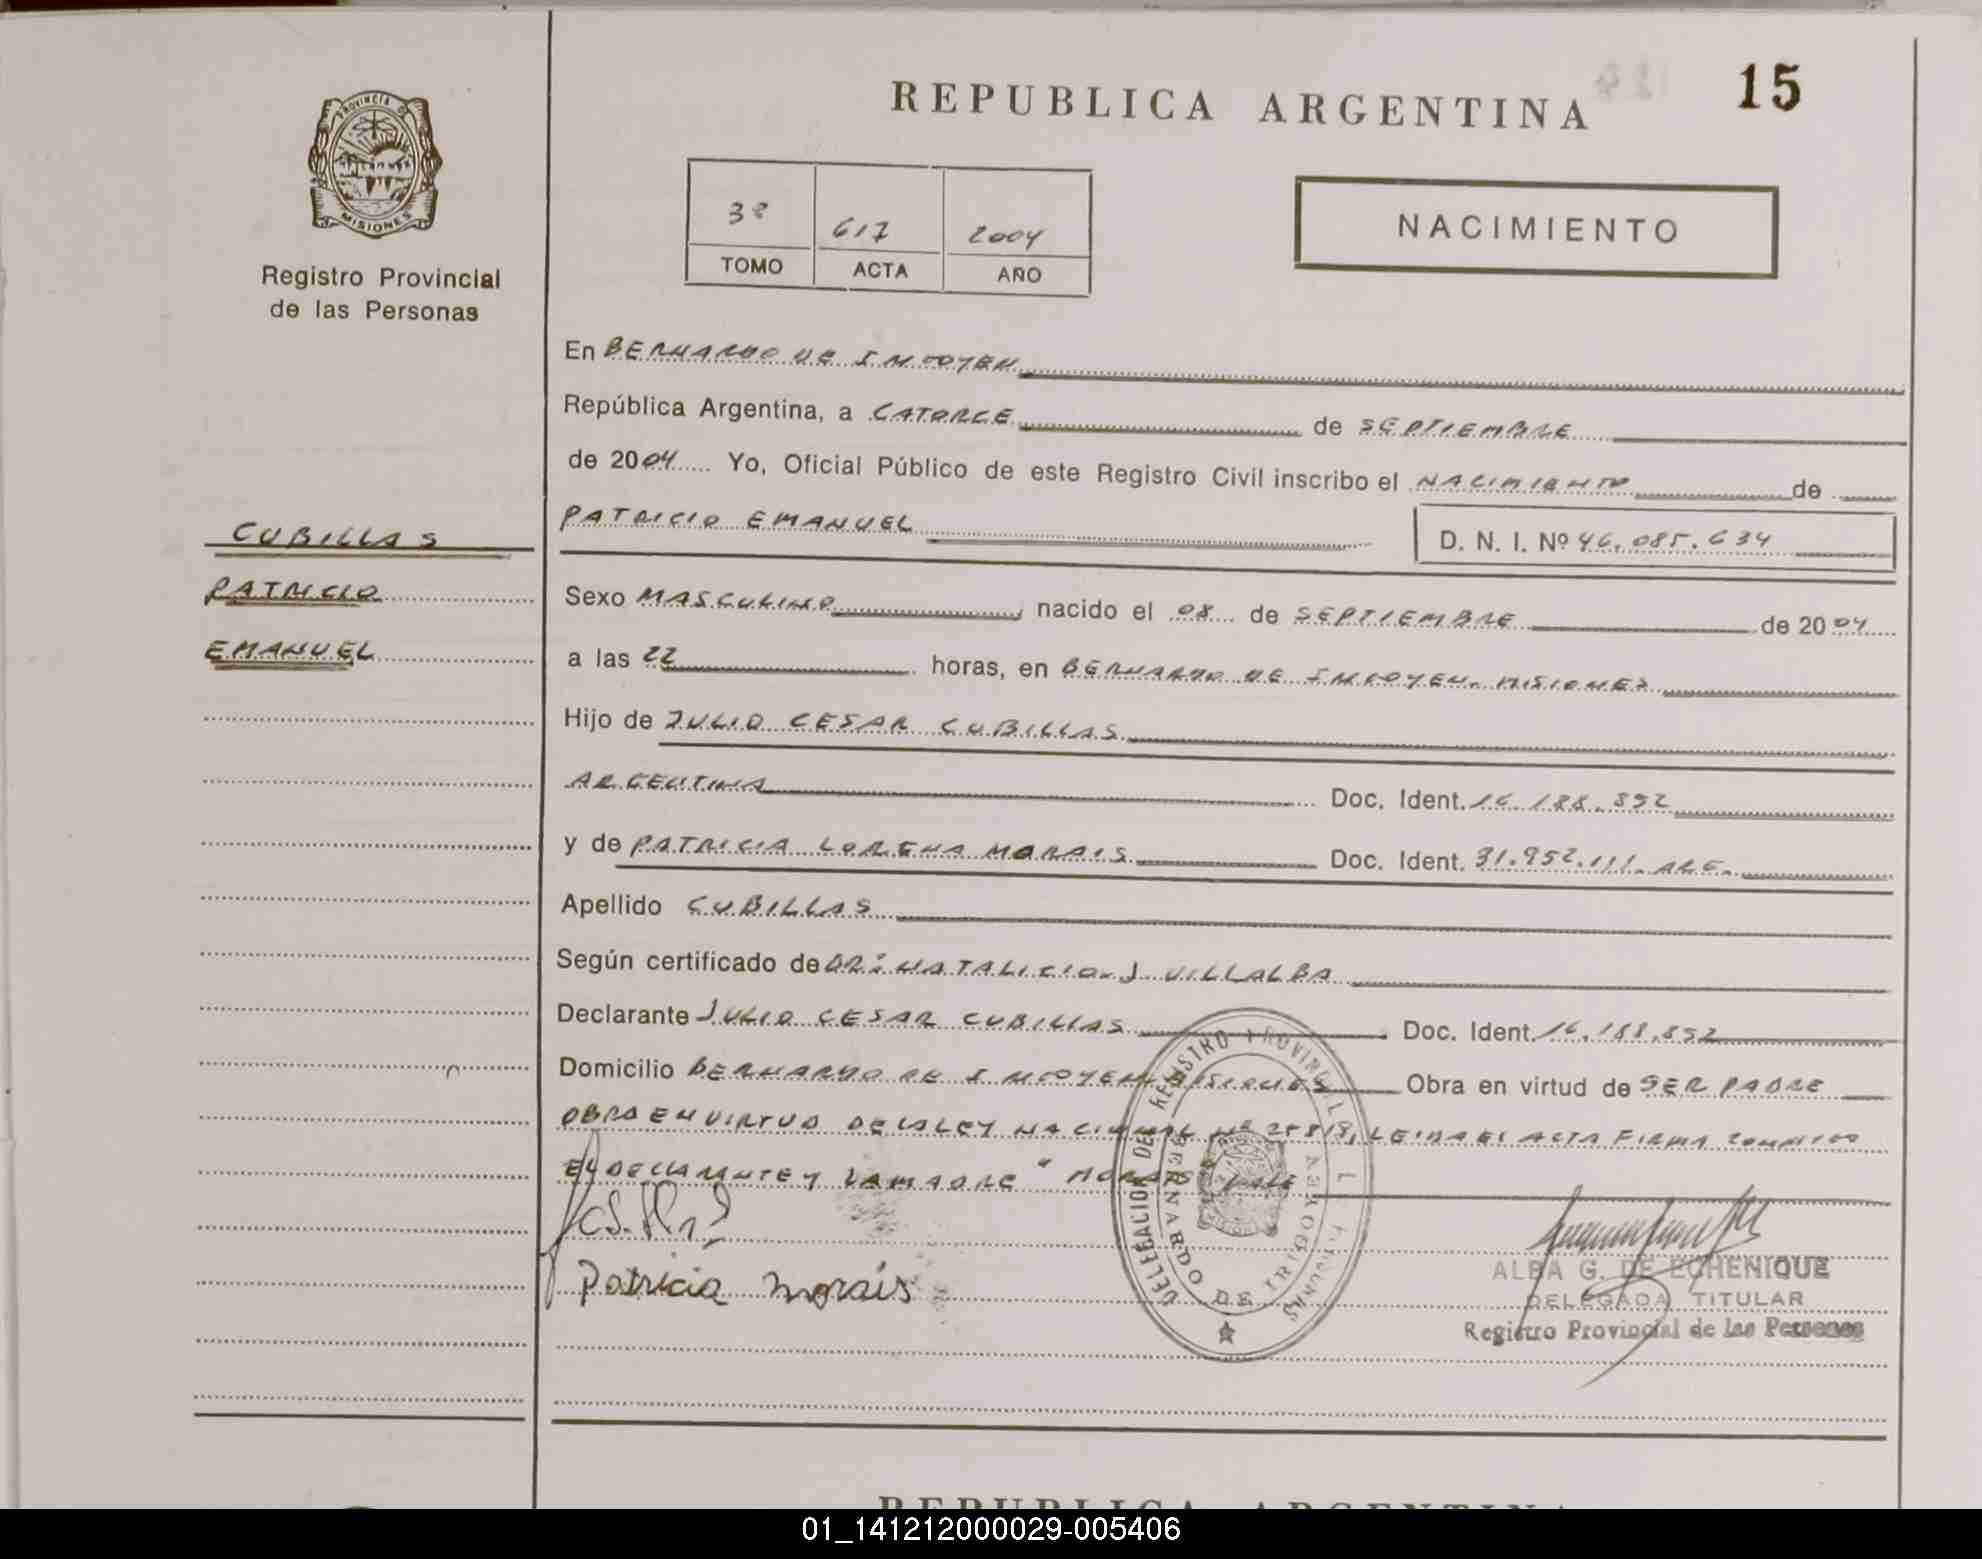 REPUBLICA ARGENTINA
15
PROVINCIA DE MISIONES
Registro Provincial
de las Personas
3º 617 2004
TOMO ACTA AÑO
NACIMIENTO
CUBILLAS
PATRICIO
EMANUEL
En BERNARDO DE IRIGOYEN
República Argentina, a CATORCE de SEPTIEMBRE
de 2004 Yo, Oficial Público de este Registro Civil inscribo el NACIMIENTO de
PATRICIO EMANUEL D. N. I. Nº 46.085.634
Sexo MASCULINO, nacido el 08 de SEPTIEMBRE de 2004
a las 22 horas, en BERNARDO DE IRIGOYEN. MISIONES
Hijo de JULIO CESAR CUBILLAS
ARGENTINA Doc. Ident. 16.188.852
y de PATRICIA LORENA MORAIS Doc. Ident. 31.952.111. ARG.
Apellido CUBILLAS
Según certificado de DR: NATALICIO J VILLALBA
Declarante JULIO CESAR CUBILLAS Doc. Ident. 16.188.852
Domicilio BERNARDO DE IRIGOYEN MISIONES Obra en virtud de SER PADRE
OBRA EN VIRTUD DE LA LEY NACIONAL Nº 25819, LEIDA EL ACTA FIRMA CONMIGO
EL DECLARANTE Y LA MADRE " MORAIS" VALE
Patricia Morais
DELEGACION DEL REGISTRO PROVINCIAL
BERNARDO DE IRIGOYEN
ALBA G. DE ECHENIQUE
DELEGADA TITULAR
Registro Provincial de las Personas
REPUBLICA ARGENTINA
01_141212000029-005406